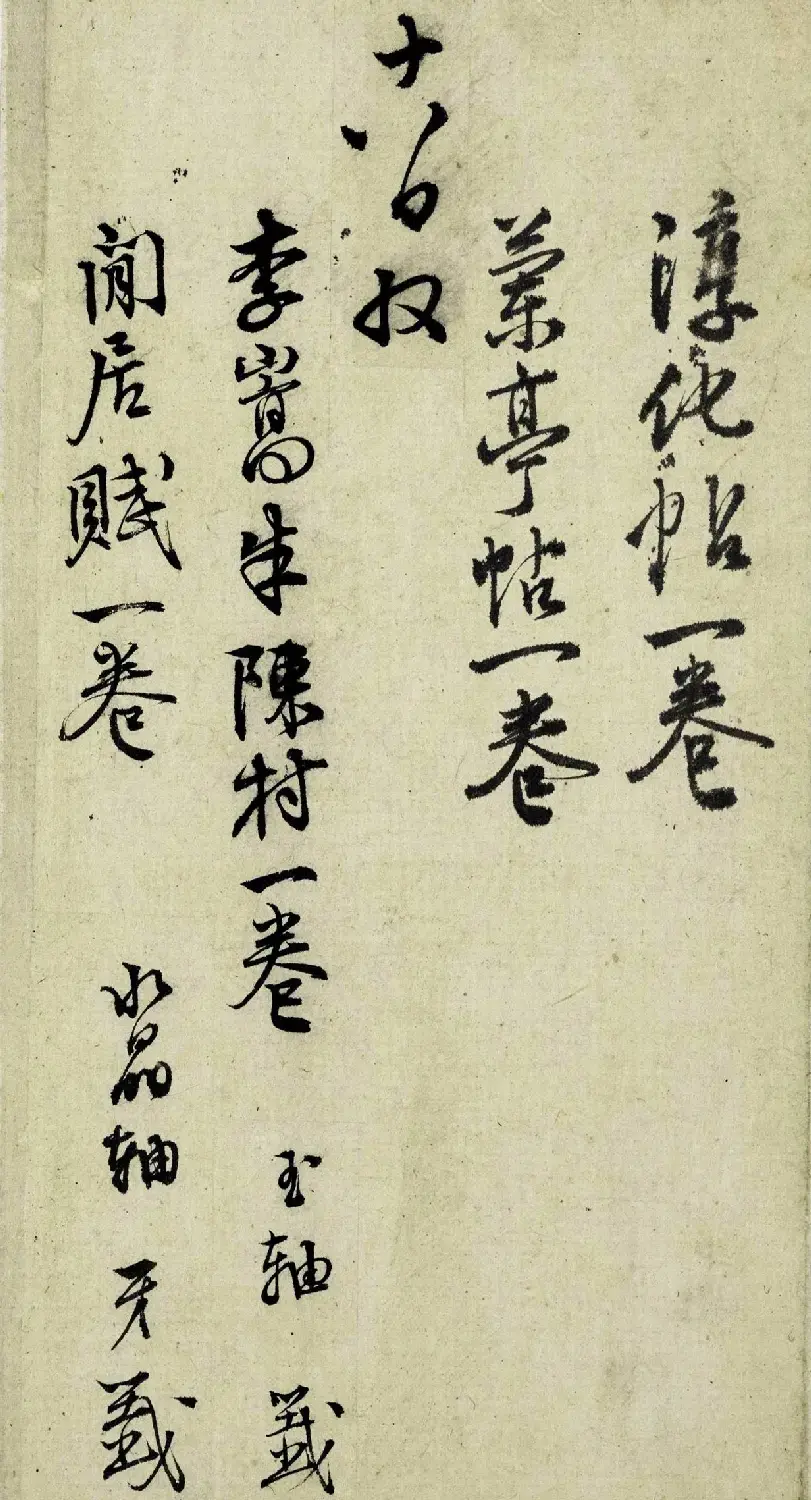 淳化帖一卷
蘭亭帖一卷
十八日収
李嵩朱陳村一卷 玉軸 籤
閒居賦一卷 水晶軸 牙籤